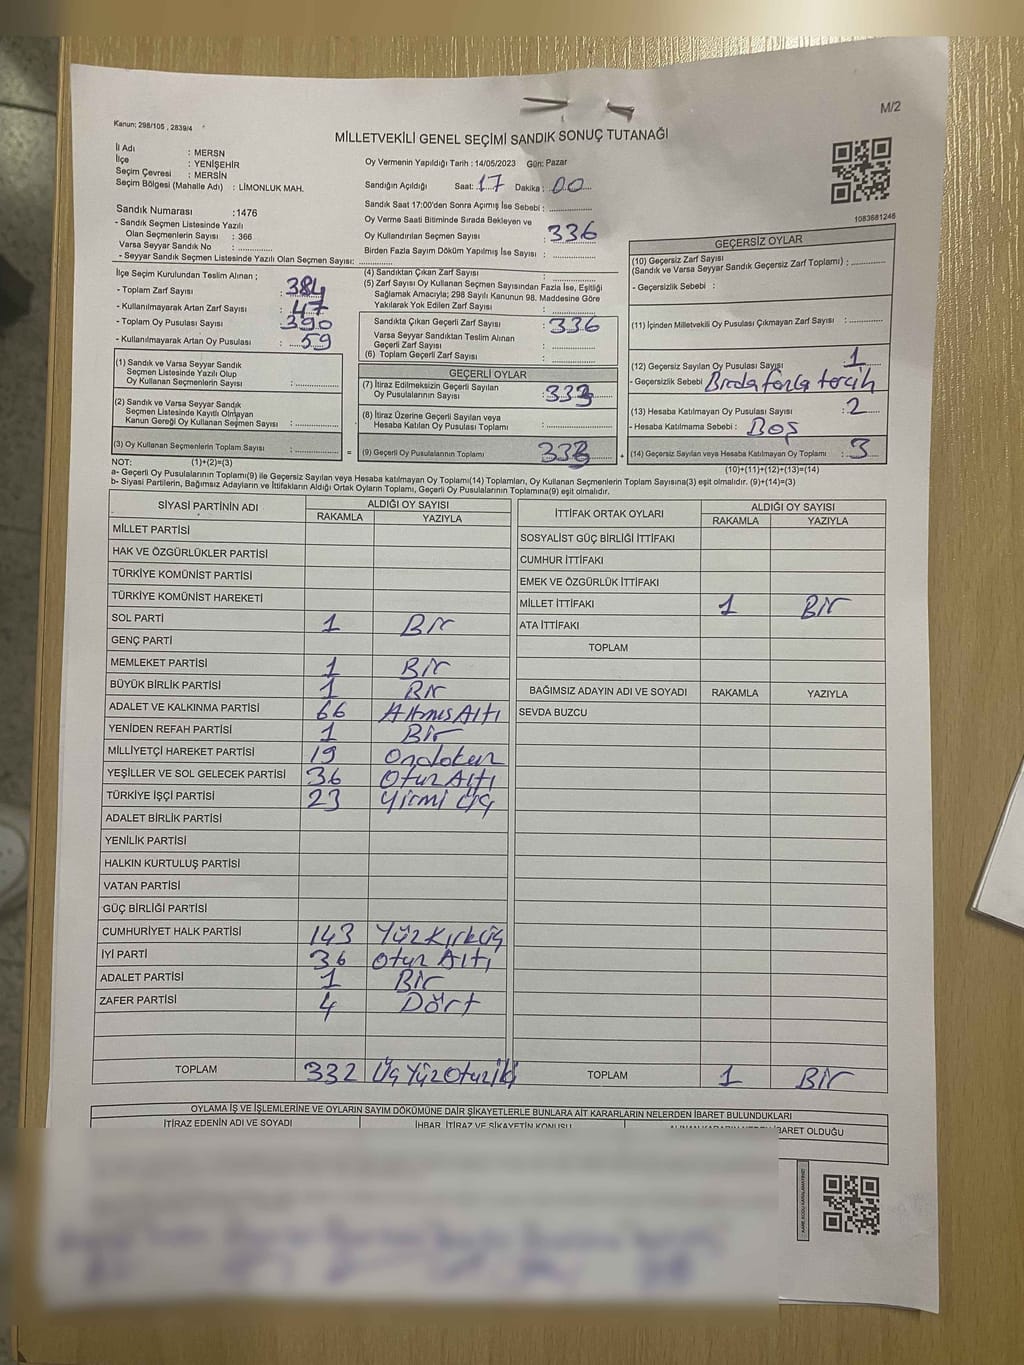 M/2
Kanun: 298/105 , 2839/4
MİLLETVEKİLİ GENEL SEÇİMİ SANDIK SONUÇ TUTANAĞI
İl Adı : MERSN
İlçe : YENİŞEHİR
Seçim Çevresi : MERSİN
Seçim Bölgesi (Mahalle Adı) : LİMONLUK MAH.
Oy Vermenin Yapıldığı Tarih : 14/05/2023 Gün: Pazar
Sandığın Açıldığı Saat: 17 Dakika : 00
Sandık Saat 17:00'den Sonra Açımış İse Sebebi : ..............
Oy Verme Saati Bitiminde Sırada Bekleyen ve
Oy Kullandırılan Seçmen Sayısı : 336
Birden Fazla Sayım Döküm Yapılmış İse Sayısı : ..............
1083681246
Sandık Numarası :1476
- Sandık Seçmen Listesinde Yazılı
Olan Seçmenlerin Sayısı : 366
Varsa Seyyar Sandık No : ..............
- Seyyar Sandık Seçmen Listesinde Yazılı Olan Seçmen Sayısı: ..............
İlçe Seçim Kurulundan Teslim Alınan ;
- Toplam Zarf Sayısı : 384
- Kullanılmayarak Artan Zarf Sayısı : 47
- Toplam Oy Pusulası Sayısı : 390
- Kullanılmayarak Artan Oy Pusulası : 59
(1) Sandık ve Varsa Seyyar Sandık
Seçmen Listesinde Yazılı Olup
Oy Kullanan Seçmenlerin Sayısı : ..............
(2) Sandık ve Varsa Seyyar Sandık
Seçmen Listesinde Kayıtlı Olmayan
Kanun Gereği Oy Kullanan Seçmen Sayısı : ..............
(3) Oy Kullanan Seçmenlerin Toplam Sayısı : ..............
=
(4) Sandıktan Çıkan Zarf Sayısı : ..............
(5) Zarf Sayısı Oy Kullanan Seçmen Sayısından Fazla İse, Eşitliği
Sağlamak Amacıyla; 298 Sayılı Kanunun 98. Maddesine Göre
Yakılarak Yok Edilen Zarf Sayısı : ..............
Sandıkta Çıkan Geçerli Zarf Sayısı : 336
Varsa Seyyar Sandıktan Teslim Alınan
Geçerli Zarf Sayısı : ..............
(6) Toplam Geçerli Zarf Sayısı : ..............
GEÇERLİ OYLAR
(7) İtiraz Edilmeksizin Geçerli Sayılan
Oy Pusulalarının Sayısı : 333
(8) İtiraz Üzerine Geçerli Sayılan veya
Hesaba Katılan Oy Pusulası Toplamı : ..............
(9) Geçerli Oy Pusulalarının Toplamı : 333
+
GEÇERSİZ OYLAR
(10) Geçersiz Zarf Sayısı
(Sandık ve Varsa Seyyar Sandık Geçersiz Zarf Toplamı) : ..............
- Geçersizlik Sebebi :
(11) İçinden Milletvekili Oy Pusulası Çıkmayan Zarf Sayısı : ..............
(12) Geçersiz Sayılan Oy Pusulası Sayısı : 1
- Geçersizlik Sebebi Birden fazla tercih
(13) Hesaba Katılmayan Oy Pusulası Sayısı : 2
- Hesaba Katılmama Sebebi : Boş
(14) Geçersiz Sayılan veya Hesaba Katılmayan Oy Toplamı : 3
(10)+(11)+(12)+(13)=(14)
NOT: (1)+(2)=(3)
a- Geçerli Oy Pusulalarının Toplamı(9) ile Geçersiz Sayılan veya Hesaba Katılmayan Oy Toplamı(14) Toplamları, Oy Kullanan Seçmenlerin Toplam Sayısına(3) eşit olmalıdır. (9)+(14)=(3)
b- Siyasi Partilerin, Bağımsız Adayların ve İttifakların Aldığı Ortak Oyların Toplamı, Geçerli Oy Pusulalarının Toplamına(9) eşit olmalıdır.
SİYASİ PARTİNİN ADI ALDIĞI OY SAYISI
RAKAMLA YAZIYLA
MİLLET PARTİSİ
HAK VE ÖZGÜRLÜKLER PARTİSİ
TÜRKİYE KOMÜNİST PARTİSİ
TÜRKİYE KOMÜNİST HAREKETİ
SOL PARTİ 1 Bir
GENÇ PARTİ
MEMLEKET PARTİSİ 1 Bir
BÜYÜK BİRLİK PARTİSİ 1 Bir
ADALET VE KALKINMA PARTİSİ 66 Altmış Altı
YENİDEN REFAH PARTİSİ 1 Bir
MİLLİYETÇİ HAREKET PARTİSİ 19 Ondokuz
YEŞİLLER VE SOL GELECEK PARTİSİ 36 Otuz Altı
TÜRKİYE İŞÇİ PARTİSİ 23 Yirmi üç
ADALET BİRLİK PARTİSİ
YENİLİK PARTİSİ
HALKIN KURTULUŞ PARTİSİ
VATAN PARTİSİ
GÜÇ BİRLİĞİ PARTİSİ
CUMHURİYET HALK PARTİSİ 143 Yüz Kırk üç
İYİ PARTİ 36 Otuz Altı
ADALET PARTİSİ 1 Bir
ZAFER PARTİSİ 4 Dört
TOPLAM 332 Üç Yüz Otuz iki
İTTİFAK ORTAK OYLARI ALDIĞI OY SAYISI
RAKAMLA YAZIYLA
SOSYALİST GÜÇ BİRLİĞİ İTTİFAKI
CUMHUR İTTİFAKI
EMEK VE ÖZGÜRLÜK İTTİFAKI
MİLLET İTTİFAKI 1 Bir
ATA İTTİFAKI
TOPLAM
BAĞIMSIZ ADAYIN ADI VE SOYADI RAKAMLA YAZIYLA
SEVDA BUZCU
TOPLAM 1 Bir
OYLAMA İŞ VE İŞLEMLERİNE VE OYLARIN SAYIM DÖKÜMÜNE DAİR ŞİKAYETLERLE BUNLARA AİT KARARLARIN NELERDEN İBARET BULUNDUKLARI
İTİRAZ EDENİN ADI VE SOYADI İHBAR, İTİRAZ VE ŞİKAYETİN KONUSU İBARET OLDUĞU